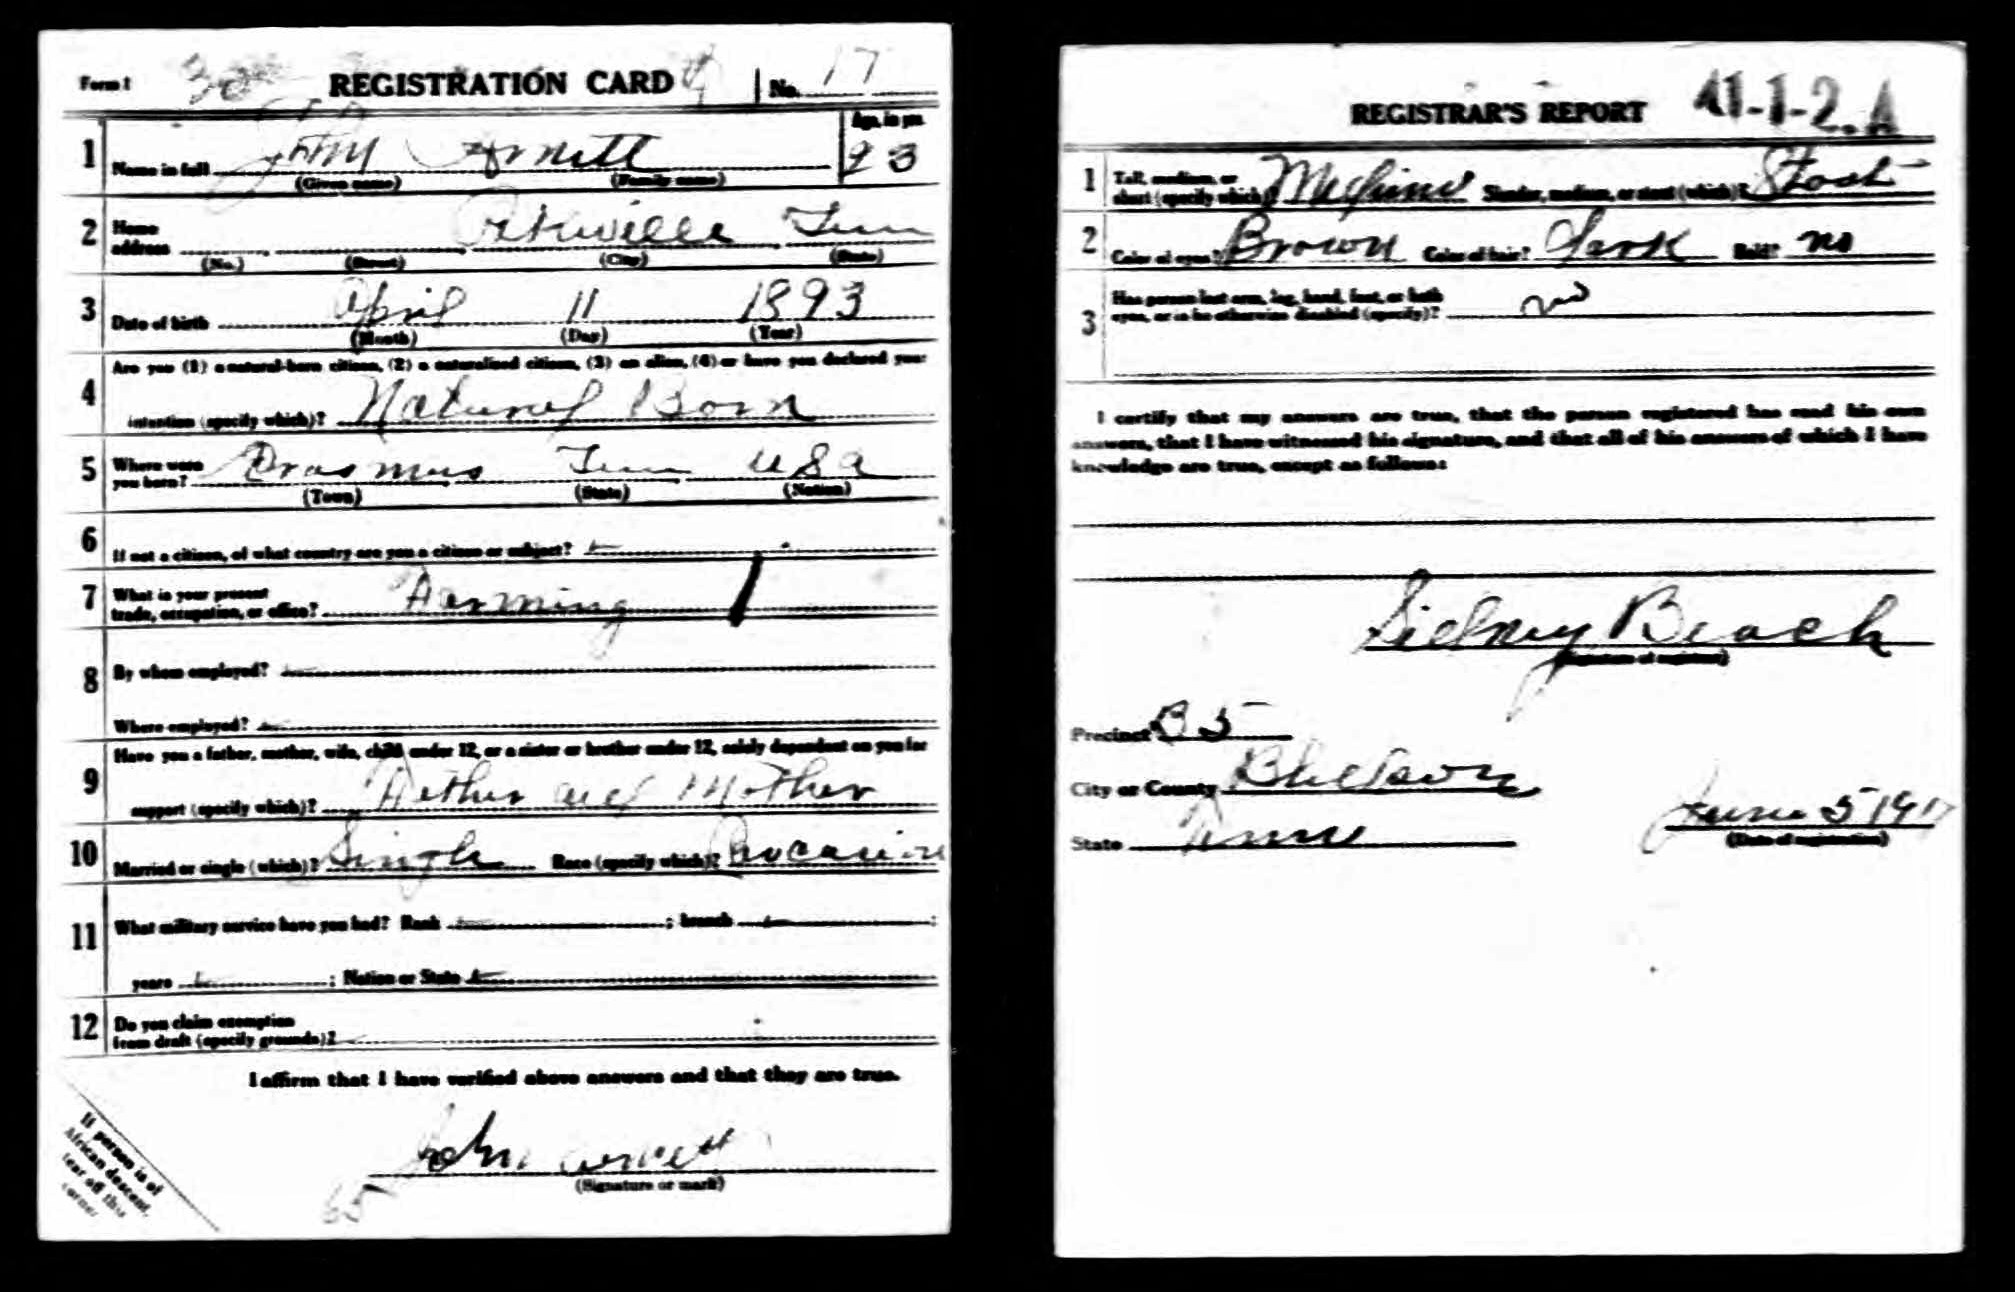 Form 1 REGISTRATION CARD No. 17
1 Name in full John Arnett Age, in yrs. 23
(Given name) (Family name)
2 Home address Pikeville Tenn
(No.) (Street) (City) (State)
3 Date of birth April 11 1893
(Month) (Day) (Year)
4 Are you (1) a natural-born citizen, (2) a naturalized citizen, (3) an alien, (4) or have you declared your
intention (specify which)? Natural Born
5 Where were you born? Erasmus Tenn USA
(Town) (State) (Nation)
6 If not a citizen, of what country are you a citizen or subject?
7 What is your present
trade, occupation, or office? Farming
8 By whom employed?
Where employed?
9 Have you a father, mother, wife, child under 12, or a sister or brother under 12, solely dependent on you for
support (specify which)? Father and Mother
10 Married or single (which)? Single Race (specify which)? Caucasian
11 What military service have you had? Rank ; branch ;
years ; Nation or State
12 Do you claim exemption
from draft (specify grounds)?
I affirm that I have verified above answers and that they are true.
John Arnett
(Signature or mark)
65
If person is of
African descent,
tear off this
corner.
REGISTRAR'S REPORT 41-1-2.A
1 Tall, medium, or
short (specify which)? Medium Slender, medium, or stout (which)? Stout
2 Color of eyes? Brown Color of hair? Dark Bald? no
3 Has person lost arm, leg, hand, foot, or both
eyes, or is he otherwise disabled (specify)? no
I certify that my answers are true, that the person registered has read his own
answers, that I have witnessed his signature, and that all of his answers of which I have
knowledge are true, except as follows:
Sidney Beach
(Signature of registrar)
Precinct B 5
City or County Bledsoe
State Tenn June 5 1917
(Date of registration)